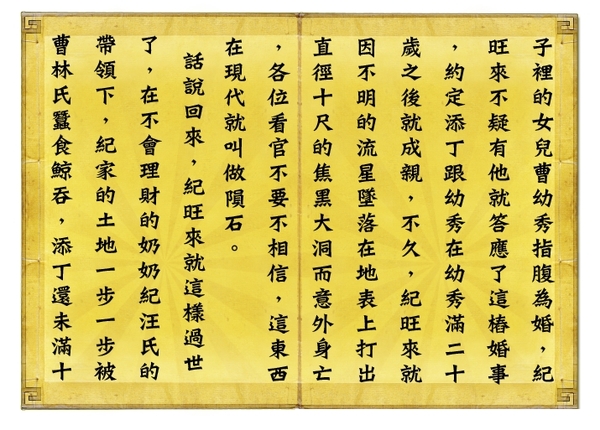 子裡的女兒曹幼秀指腹為婚，紀
旺來不疑有他就答應了這樁婚事
，約定添丁跟幼秀在幼秀滿二十
歲之後就成親，不久，紀旺來就
因不明的流星墜落在地表上打出
直徑十尺的焦黑大洞而意外身亡
，各位看官不要不相信，這東西
在現代就叫做隕石。
話說回來，紀旺來就這樣過世
了，在不會理財的奶奶紀汪氏的
帶領下，紀家的土地一步一步被
曹林氏蠶食鯨吞，添丁還未滿十